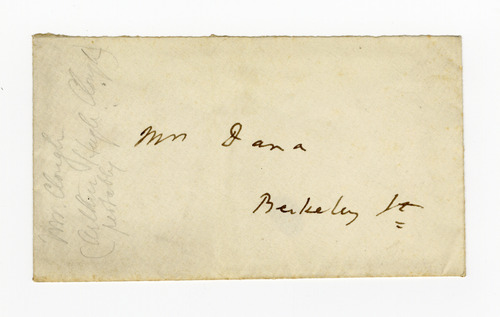 Mrs Dana
Berkeley St
Mr Clough
(Arthur Hugh Clough
probably